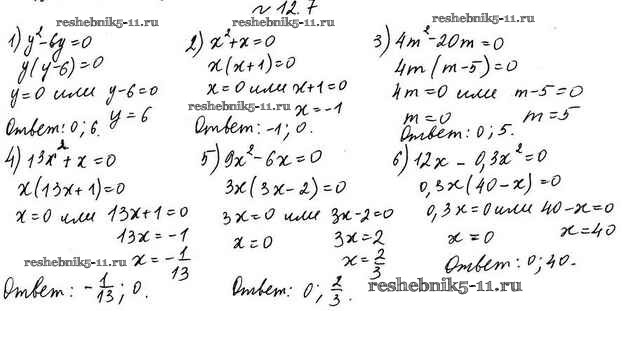 № 12.7
reshebnik5-11.ru
reshebnik5-11.ru
1) y²-6y=0
y(y-6)=0
y=0 или y-6=0
y=6
Ответ: 0; 6.
2) x²+x=0
x(x+1)=0
x=0 или x+1=0
reshebnik5-11.ru
x=-1
Ответ: -1; 0.
3) 4m²-20m=0
4m(m-5)=0
4m=0 или m-5=0
m=0 m=5
Ответ: 0; 5.
4) 13x²+x=0
x(13x+1)=0
x=0 или 13x+1=0
13x=-1
reshebnik5-11.ru
x=-1/13
Ответ: -1/13; 0.
5) 9x²-6x=0
3x(3x-2)=0
3x=0 или 3x-2=0
x=0 3x=2
x=2/3
Ответ: 0; 2/3.
6) 12x-0,3x²=0
0,3x(40-x)=0
0,3x=0 или 40-x=0
x=0 x=40
Ответ: 0; 40.
reshebnik5-11.ru